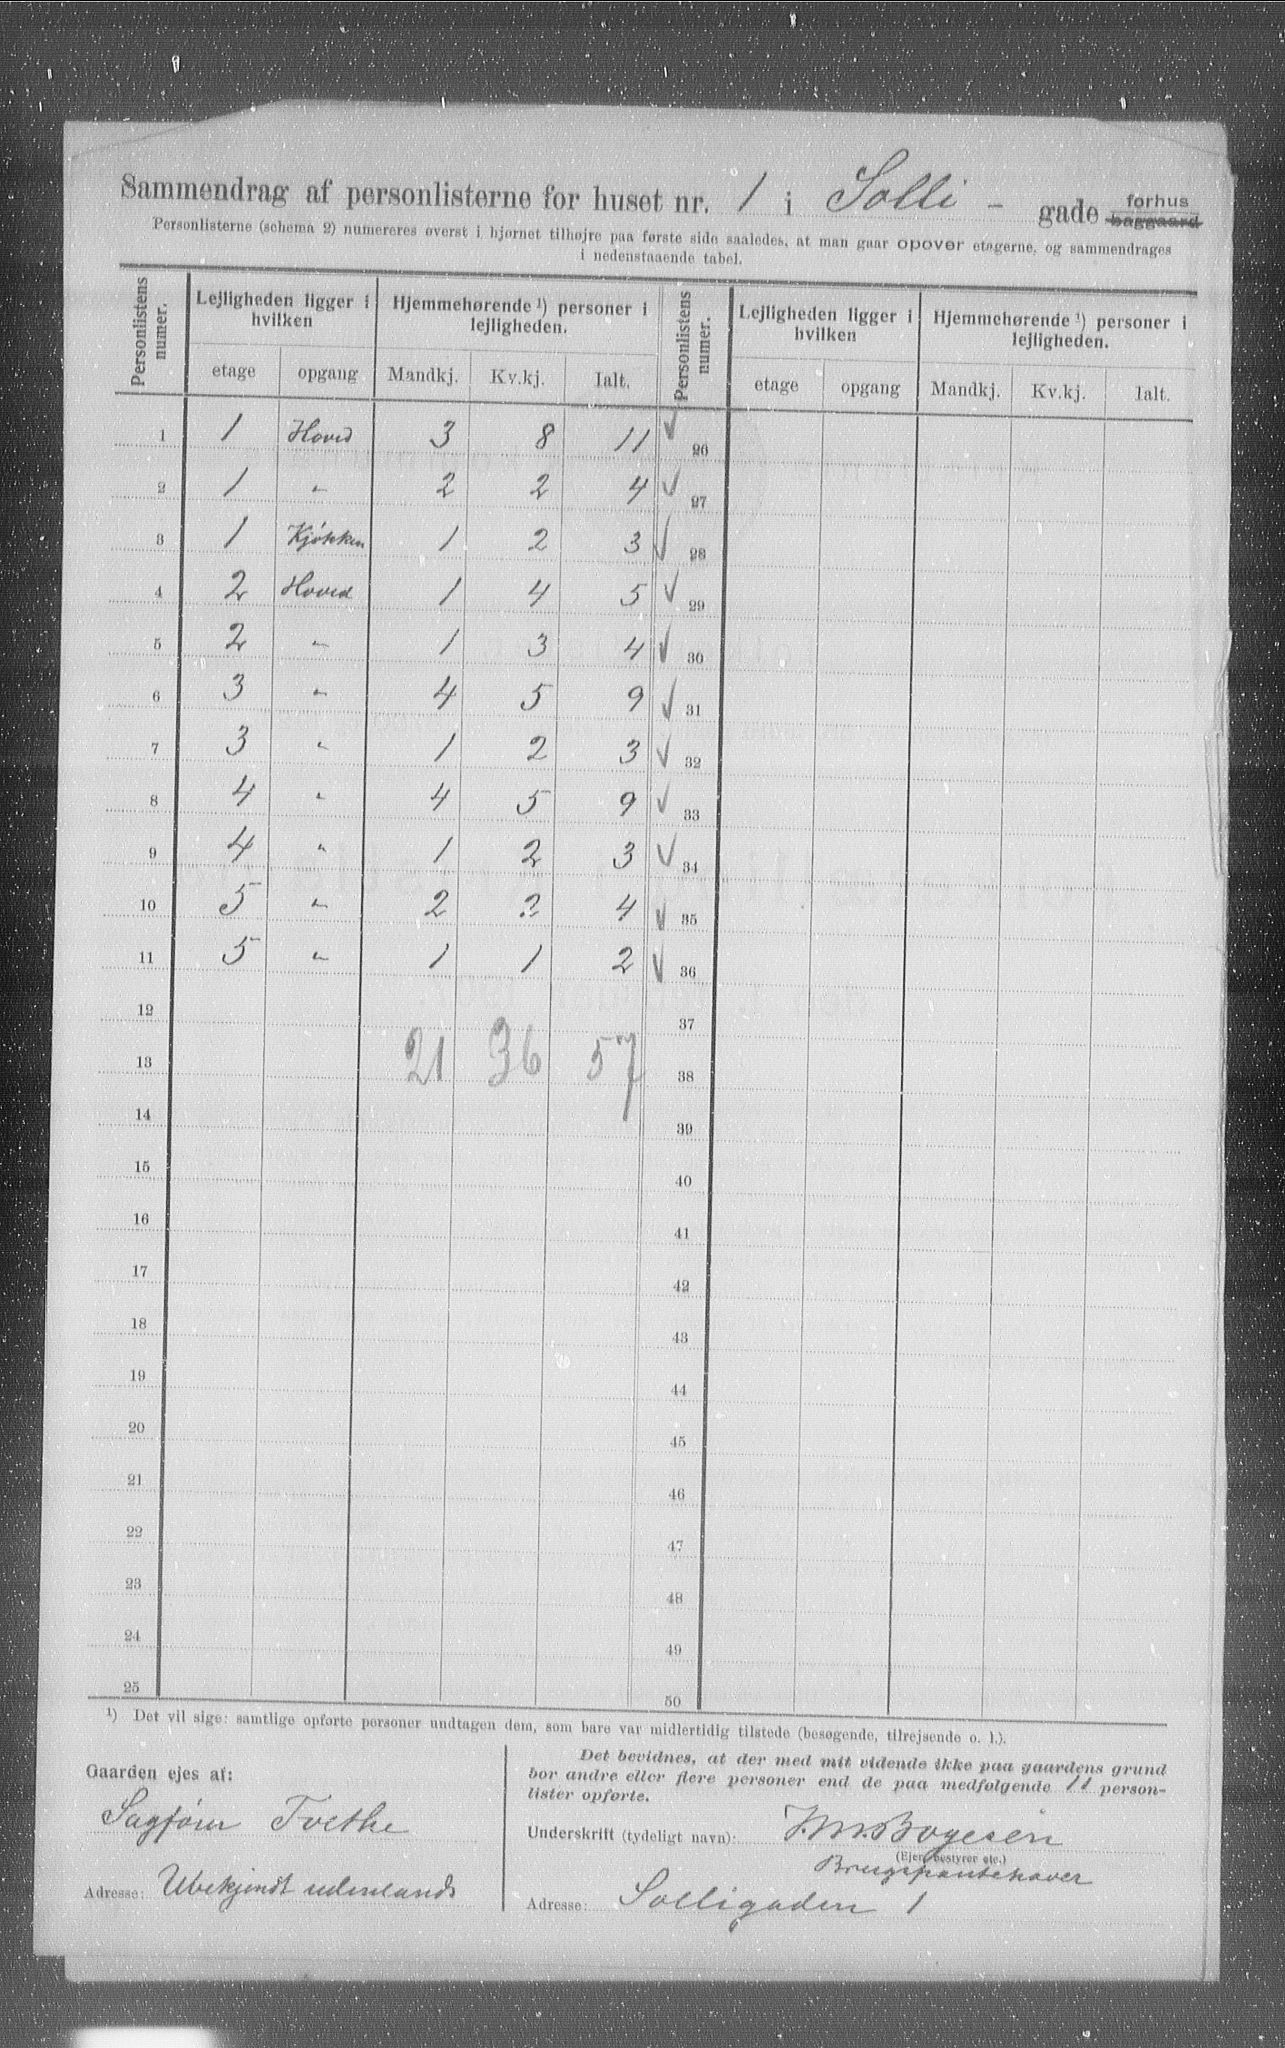 Sammendrag af personlisterne for huset nr. 1 i Solli - gade forhus baggaard
Personlisterne (schema 2) numereres øverst i hjørnet tilhøjre paa første side saaledes, at man gaar opover etagerne, og sammendrages
i nedenstaaende tabel.
Personlistens numer. Lejligheden ligger i hvilken Hjemmehørende ¹) personer i lejligheden. Personlistens numer. Lejligheden ligger i hvilken Hjemmehørende ¹) personer i lejligheden.
etage opgang Mandkj. Kv.kj. Ialt. etage opgang Mandkj. Kv.kj. Ialt.
1 1 Hoved 3 8 11 ✓ 26
2 1 " 2 2 4 ✓ 27
3 1 Kjøkken 1 2 3 ✓ 28
4 2 Hoved 1 4 5 ✓ 29
5 2 " 1 3 4 ✓ 30
6 3 " 4 5 9 ✓ 31
7 3 " 1 2 3 ✓ 32
8 4 " 4 5 9 ✓ 33
9 4 " 1 2 3 ✓ 34
10 5 " 2 2 4 ✓ 35
11 5 " 1 1 2 ✓ 36
12 37
13 21 36 57 38
14 39
15 40
16 41
17 42
18 43
19 44
20 45
21 46
22 47
23 48
24 49
25 50
¹) Det vil sige: samtlige opførte personer undtagen dem, som bare var midlertidig tilstede (besøgende, tilrejsende o. l.).
Gaarden ejes af:
Sagfører Tvethe
Adresse: Ubekjendt udenlands
Det bevidnes, at der med mit vidende ikke paa gaardens grund
bor andre eller flere personer end de paa medfølgende 11 person-
lister opførte.
Underskrift (tydeligt navn): J.M.Bogesen
(Ejer, bestyrer etc.)
Brugspantehaver
Adresse: Solligaden 1